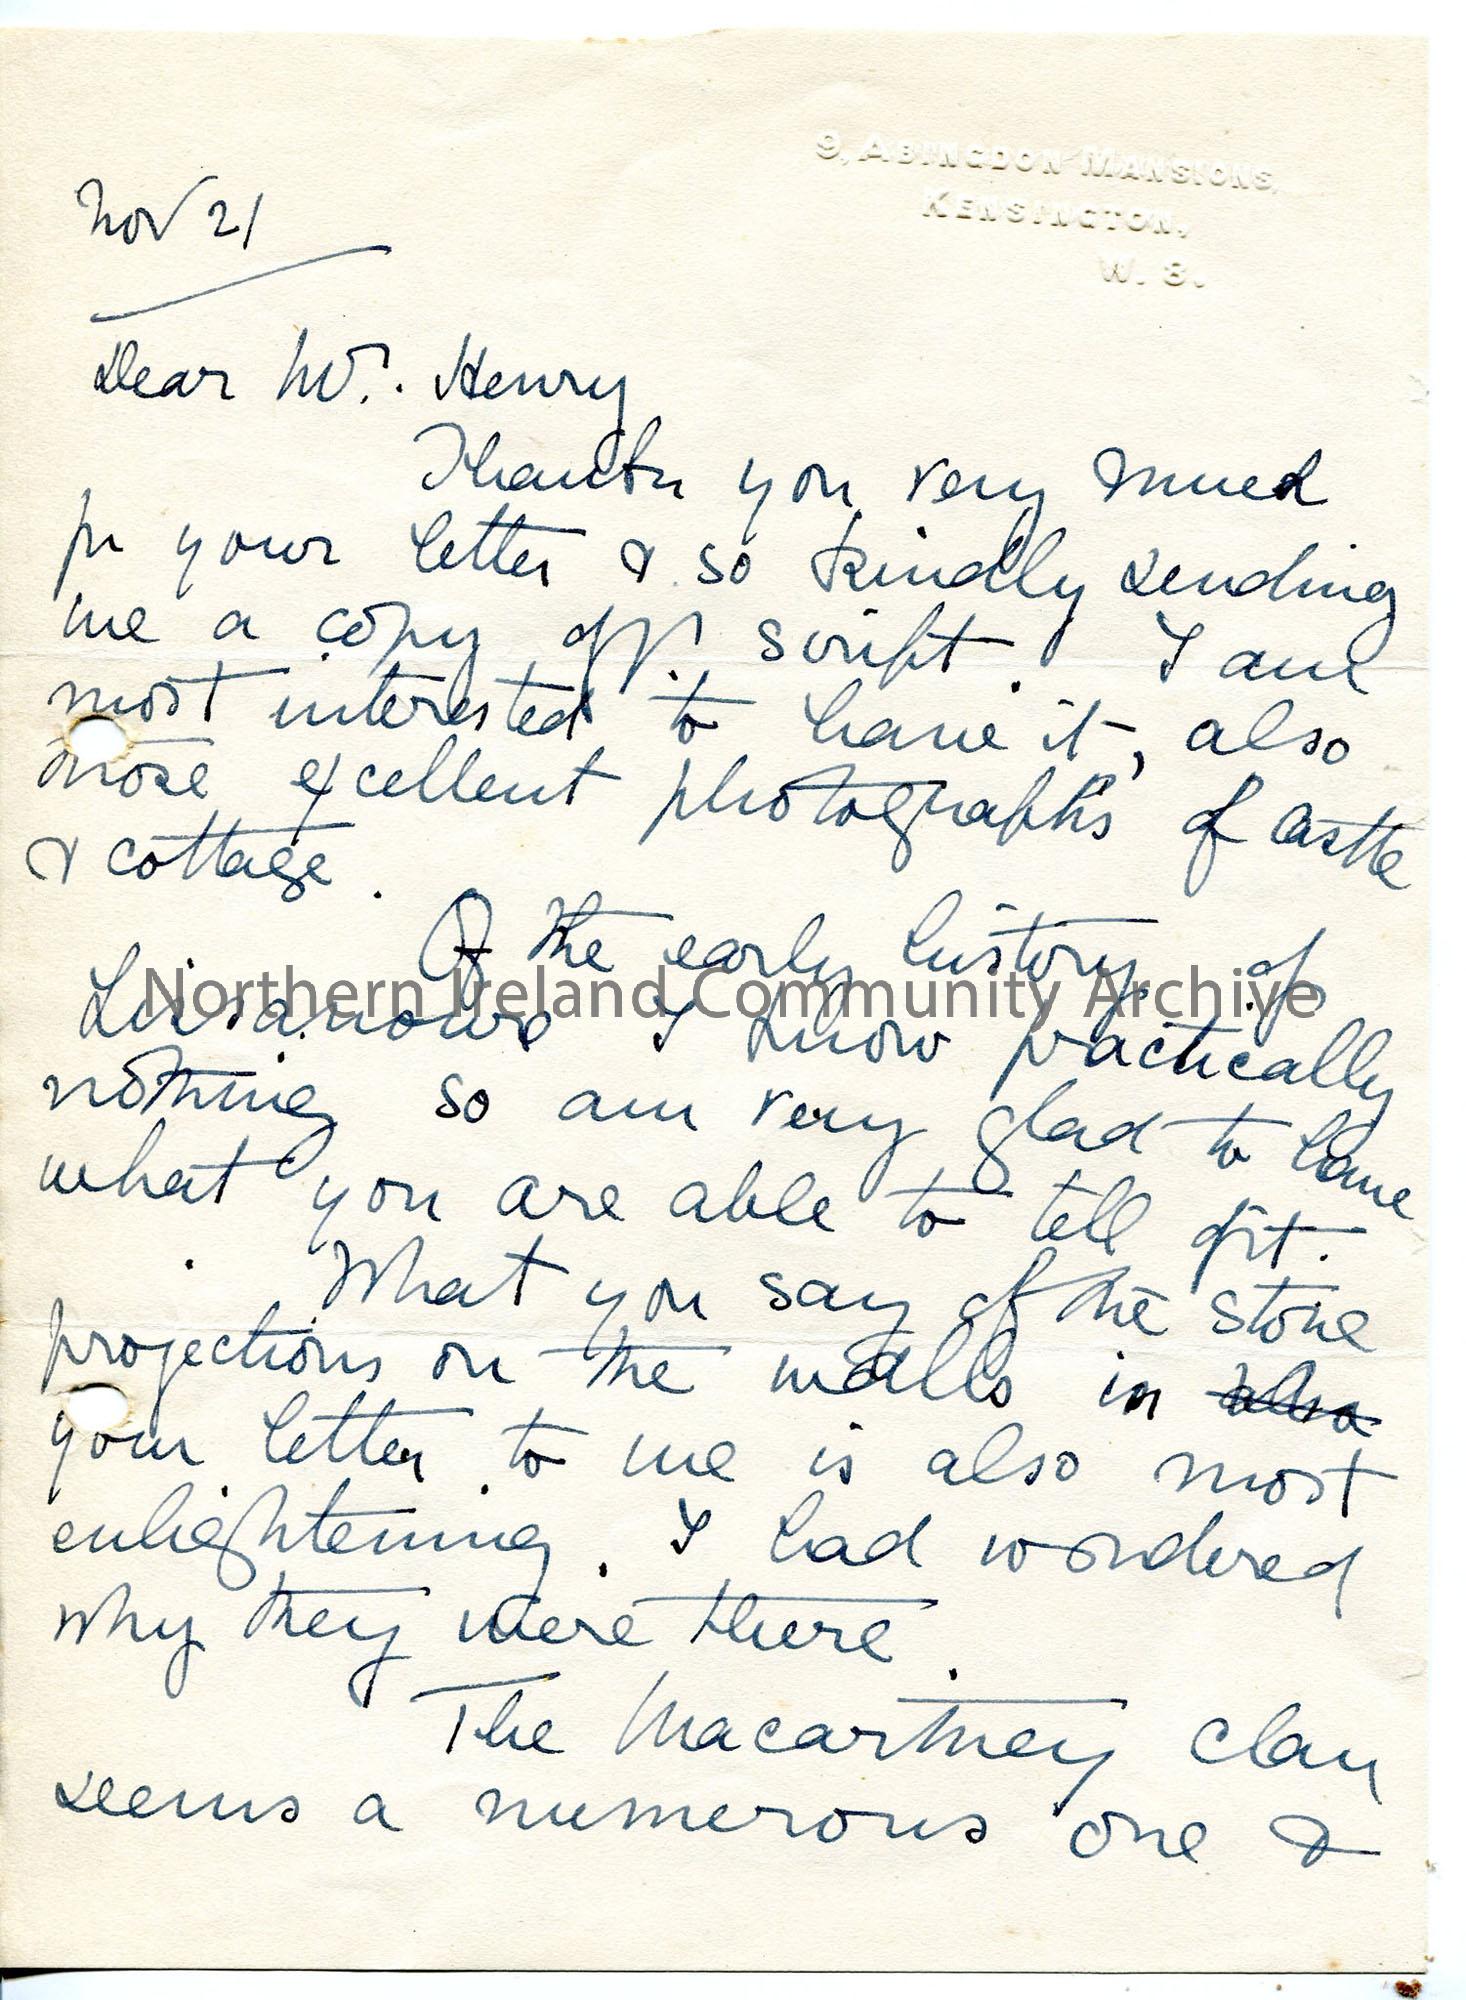 9, ABINGDON MANSIONS,
KENSINGTON,
W. 8.
Nov 21
Dear Mr. Henry
Thank you very much
for your letter & so kindly sending
me a copy of yr. script. I am
most interested to have it, also
those excellent photographs of Castle
& cottage.
Of the early history of
Lissanoure I know practically
nothing so am very glad to have
what you are able to tell of it.
What you say of the stone
projections on the walls in
your letter to me is also most
enlightening. I had wondered
why they were there.
The Macartney clan
seems a numerous one &
Northern Ireland Community Archive